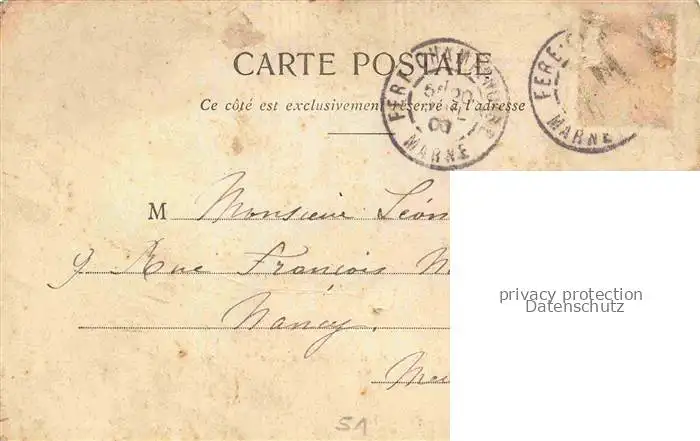 CARTE POSTALE
Ce côté est exclusivement réservé à l'adresse
FERE-CHAMPENOISE
MARNE
FERE-C
MARNE
M Monsieur Léon
9 Rue François
Nancy.
privacy protection
Datenschutz
51